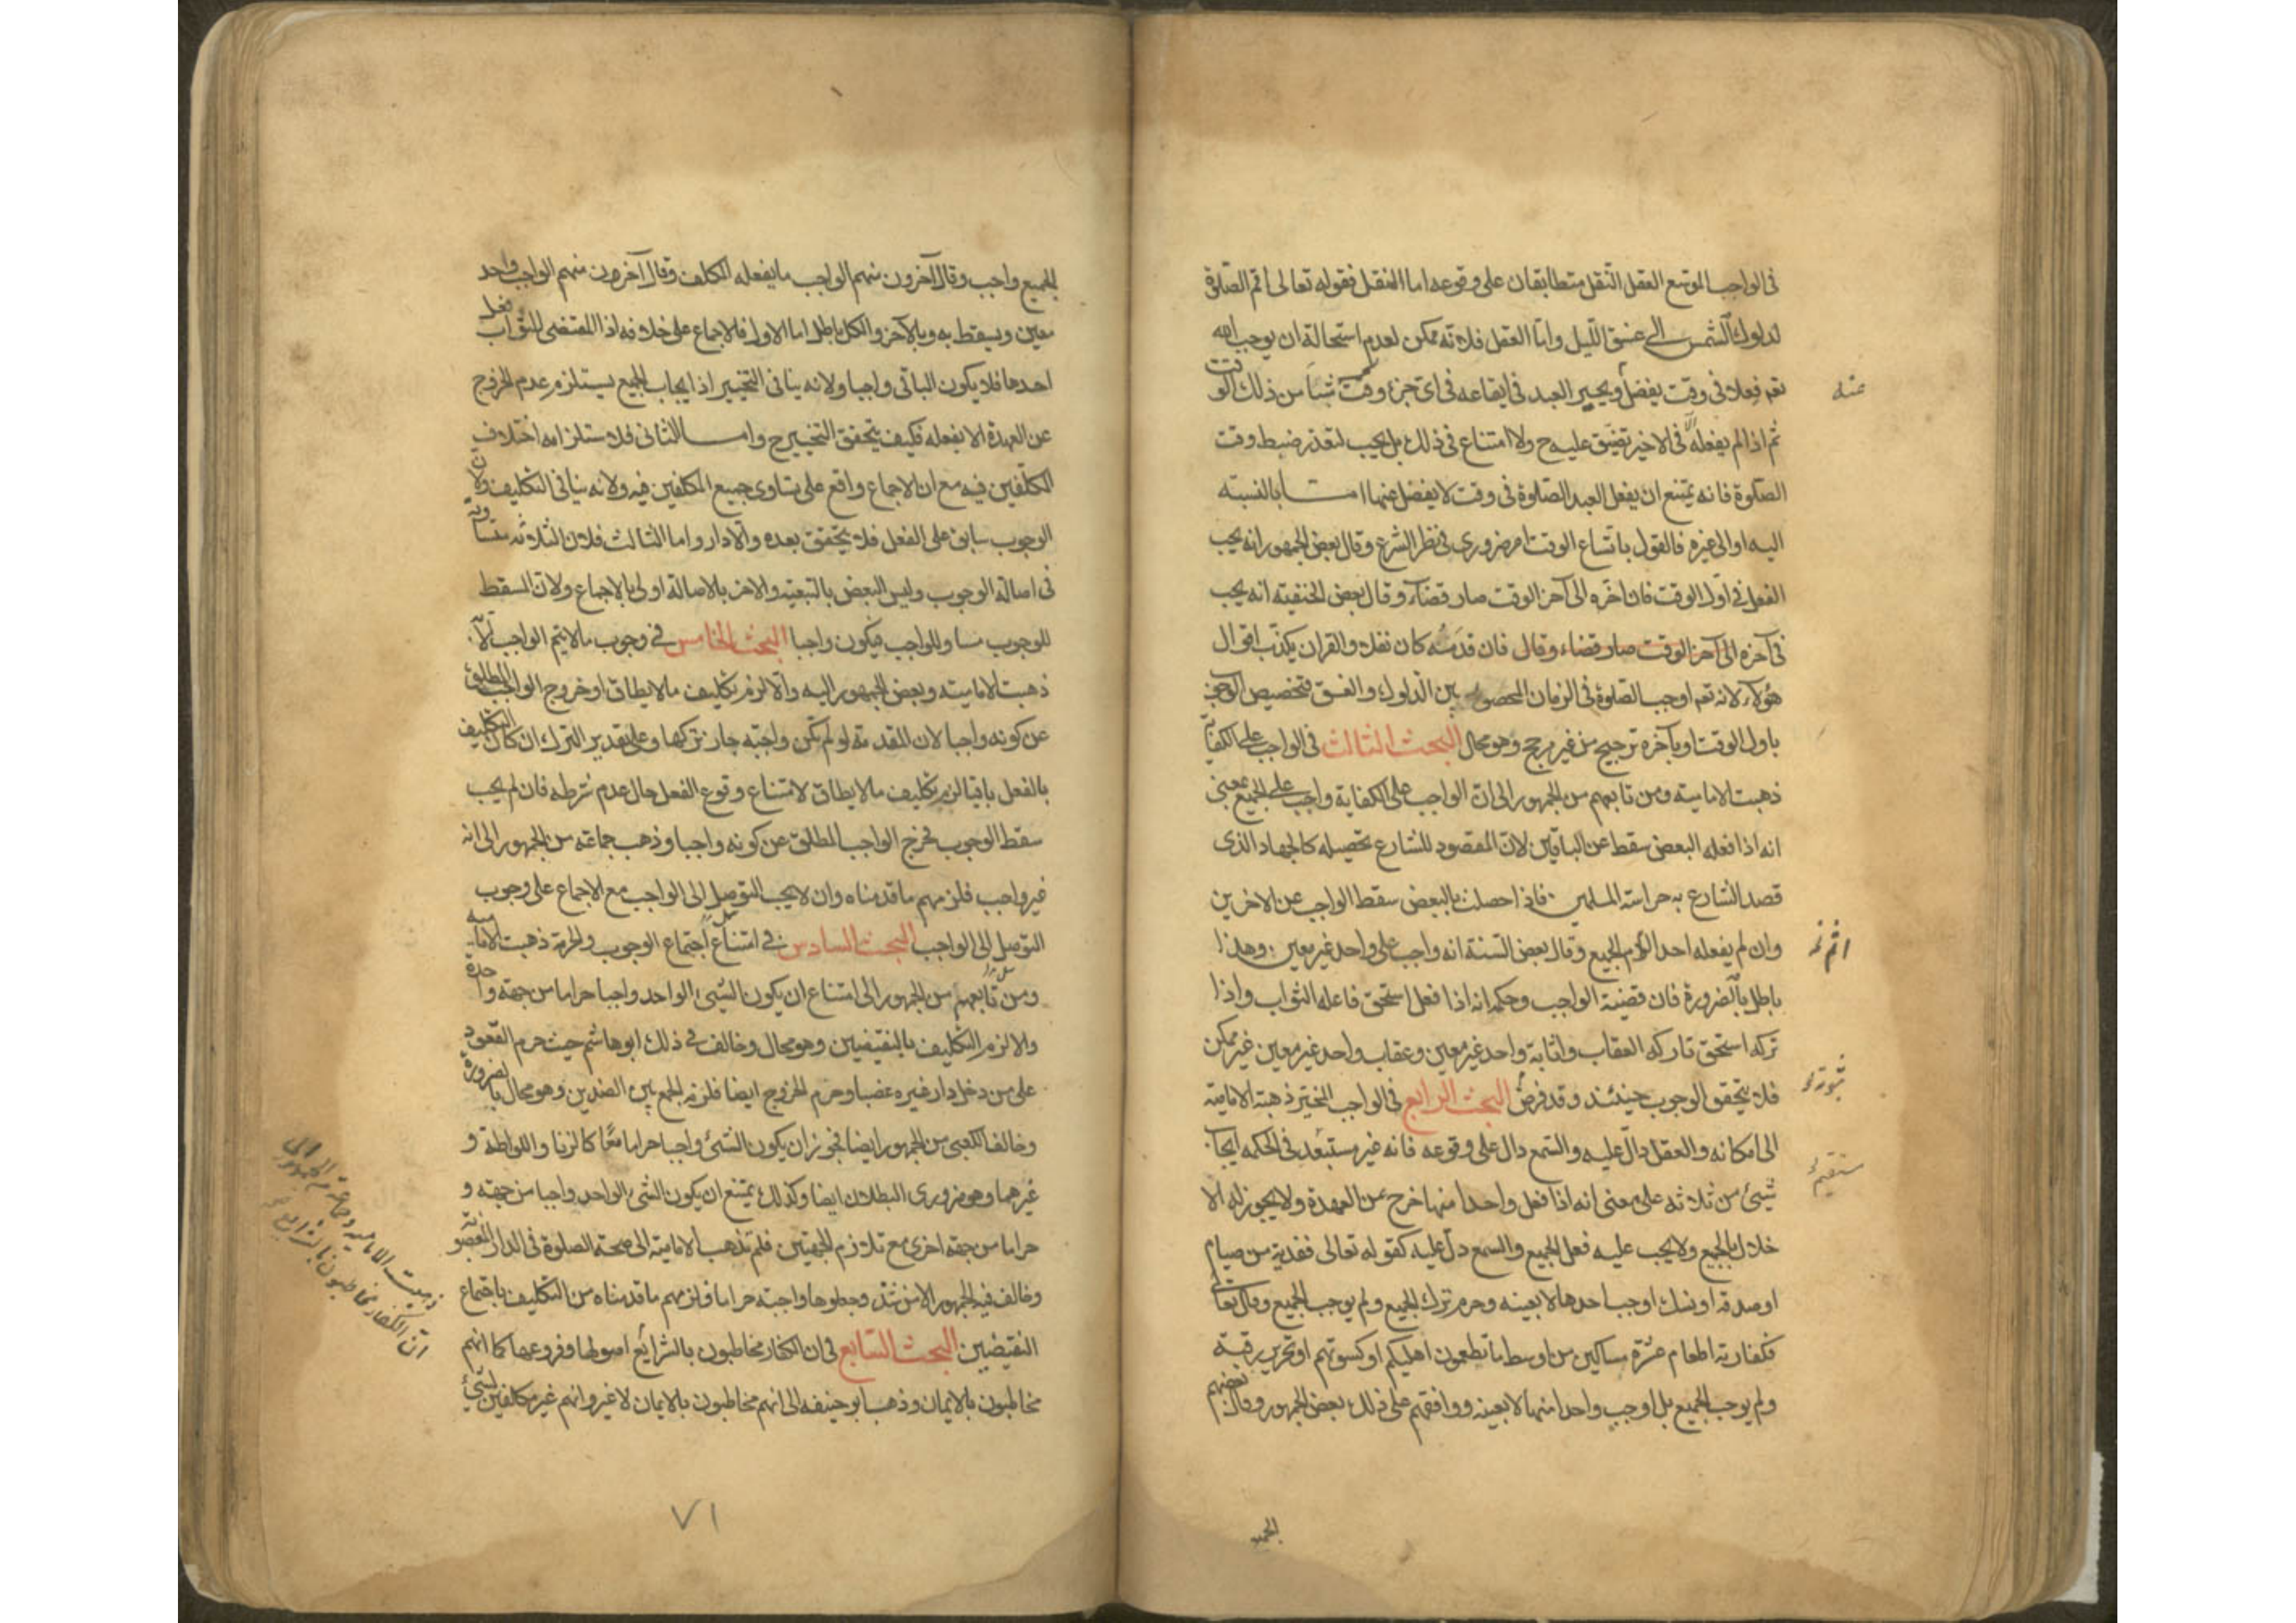 فى الواجب الموسع العقل النقل متطابقان على وقوعه اما النقل فقوله تعالى اقم الصلوة
لدلوك الشمس الى غسق الليل واما العقل فلانه ممكن لعدم استحالة ان يوجب الله
تعم فعلا فى وقت يفضل ويخير العبد فى ايقاعه فى اى جزء وقت شيأ من ذلك الوقت
عنه
ثم اذا لم يفعله فى الاخير تضيق عليه ح ولا امتناع فى ذلك بل يجب لتعذر ضبط وقت
الصلوة فانه يمتنع ان يفعل العبد الصلوة فى وقت لا يفضل عنها اما بالنسبته
اليه او الى غيره فالقول باتساع الوقت امر ضرورى فى نظر الشرع وقال بعض الجمهور انه يجب
الفعل فى اول الوقت فان اخره الى آخر الوقت صار قضاء وقال بعض الحنفيته انه يجب
فى آخره الى آخر الوقت صار قضاء وقال فان قدمه كان نفلا والقران يكذب اقوال
هؤلاء لانه تعم اوجب الصلوة فى الزمان المحصور بين الدلوك والغسق فتخصيص الوجوب
باول الوقت او بآخره ترجيح من غير مرجح وهو محال البحث الثالث فى الواجب على الكفاية
ذهبت الاماميته ومن تابعهم من الجمهور الى ان الواجب على الكفاية واجب على الجميع بمعنى
انه اذا فعله البعض سقط عن الباقين لان المقصود للشارع تحصيله كالجهاد الذى
قصد الشارع به حراسة المسلمين فاذا حصلت بالبعض سقط الواجب عن الاخرين
وان لم يفعله احد الجميع وقال بعض السنة انه واجب على واحد غير معين وهذا
اثم
باطل بالضرورة فان قضية الواجب وحكمه انه اذا فعل استحق فاعله الثواب واذا
تركه استحق تاركه العقاب واثابة واحد غير معين وعقاب واحد غير معين غير ممكن
فلا يتحقق الوجوب حينئذ وقد فرض البحث الرابع فى الواجب المخير ذهبت الامامية
ثبوته
الى امكانه والعقل دال عليه والسمع دال على وقوعه فانه غير مستبعد فى الحكمه ايجاب
شيئ من ثلاثه على معنى انه اذا فعل واحدا منها خرج عن العهدة ولا يجوز له الا
خلال بالجميع ولا يجب عليه فعل الجميع والسمع دل عليه كقوله تعالى ففدية من صيام
او صدقه او نسك اوجب احدها لا بعينه وحرم ترك الجميع ولم يوجب الجميع وقال تعالى
فكفارته اطعام عشرة مساكين من اوسط ما تطعمون اهليكم او كسوتهم او تحرير رقبة
ولم يوجب الجميع بل اوجب واحدا منها لا بعينه ووافقهم على ذلك بعض الجمهور وقال بعضهم
الجميع
الجميع واجب وقال آخرون منهم الواجب ما يفعله المكلف وقال آخرون منهم الواجب واحد
معين ويسقط به وبالآخر والكل باطل اما الاول فللاجماع على خلافه اذا المقتضى للثواب فعل
احدها فلا يكون الباقى واجبا ولانه ينافى التخيير اذ ايجاب الجميع يستلزم عدم الخروج
عن العهدة الا بفعله فكيف يتحقق التخيير ح واما الثانى فلاستلزامه اختلاف
المكلفين فيه مع ان الاجماع واقع على تساوى جميع المكلفين فيه ولانه ينافى التكليف ولان
الوجوب سابق على الفعل فلا يتحقق بعده والا دار واما الثالث فلان الثلاثه متساوية
فى اصالة الوجوب وليس البعض بالتبعيته والاخر بالاصالة اولى بالاجماع ولان المسقط
للوجوب مساو للواجب فيكون واجبا البحث الخامس فى وجوب ما لا يتم الواجب الا به
ذهبت الاماميته وبعض الجمهور اليه والا لزم تكليف ما لا يطاق او خروج الواجب المطلق
عن كونه واجبا لان المقدمة لو لم تكن واجبة جاز تركها وعلى تقدير الترك ان كان التكليف
بالفعل باقيا لزم تكليف ما لا يطاق لامتناع وقوع الفعل حال عدم شرطه فان لم يجب
سقط الوجوب فخرج الواجب المطلق عن كونه واجبا وذهب جماعة من الجمهور الى انه
غير واجب فلزمهم ما قدمناه وان لا يجب التوصل الى الواجب مع الاجماع على وجوب
التوصل الى الواجب البحث السادس فى امتناع اجتماع الوجوب والحرمة ذهبت الامامية
ومن تابعهم من الجمهور الى امتناع ان يكون الشيئ الواحد واجبا حراما من جهة واحدة
والا لزم التكليف بالنقيضين وهو محال وخالف فى ذلك ابو هاشم حيث حرم القعود
على من دخل دار غيره غصبا وحرم الخروج ايضا فلزمه الجمع بين الضدين وهو محال بالضرورة
وخالف الكعبى من الجمهور ايضا فجوز ان يكون الشئ واجبا حراما معا كالزنا واللواطة و
غيرهما وهو ضرورى البطلان ايضا وكذلك يمتنع ان يكون الشئ الواحد واجبا من جهته و
حراما من جهة اخرى مع تلازم الجهتين فلم تذهب الاماميته الى صحة الصلوة فى الدار المغصوبة
وخالف فيه الجمهور الا من شذ وجعلوها واجبة حراما فلزمهم ما قدمناه من التكليف باجتماع
النقيضين البحث السابع فى ان الكفار مخاطبون بالشرائع اصولها وفروعها كما انهم
مخاطبون بالايمان وذهب ابو حنيفه الى انهم مخاطبون بالايمان لا غير وانهم غير مكلفين بشئ
ذهبت الاماميه وجماعة من الجمهور الى
ان الكفار مخاطبون بالشرايع
٧١